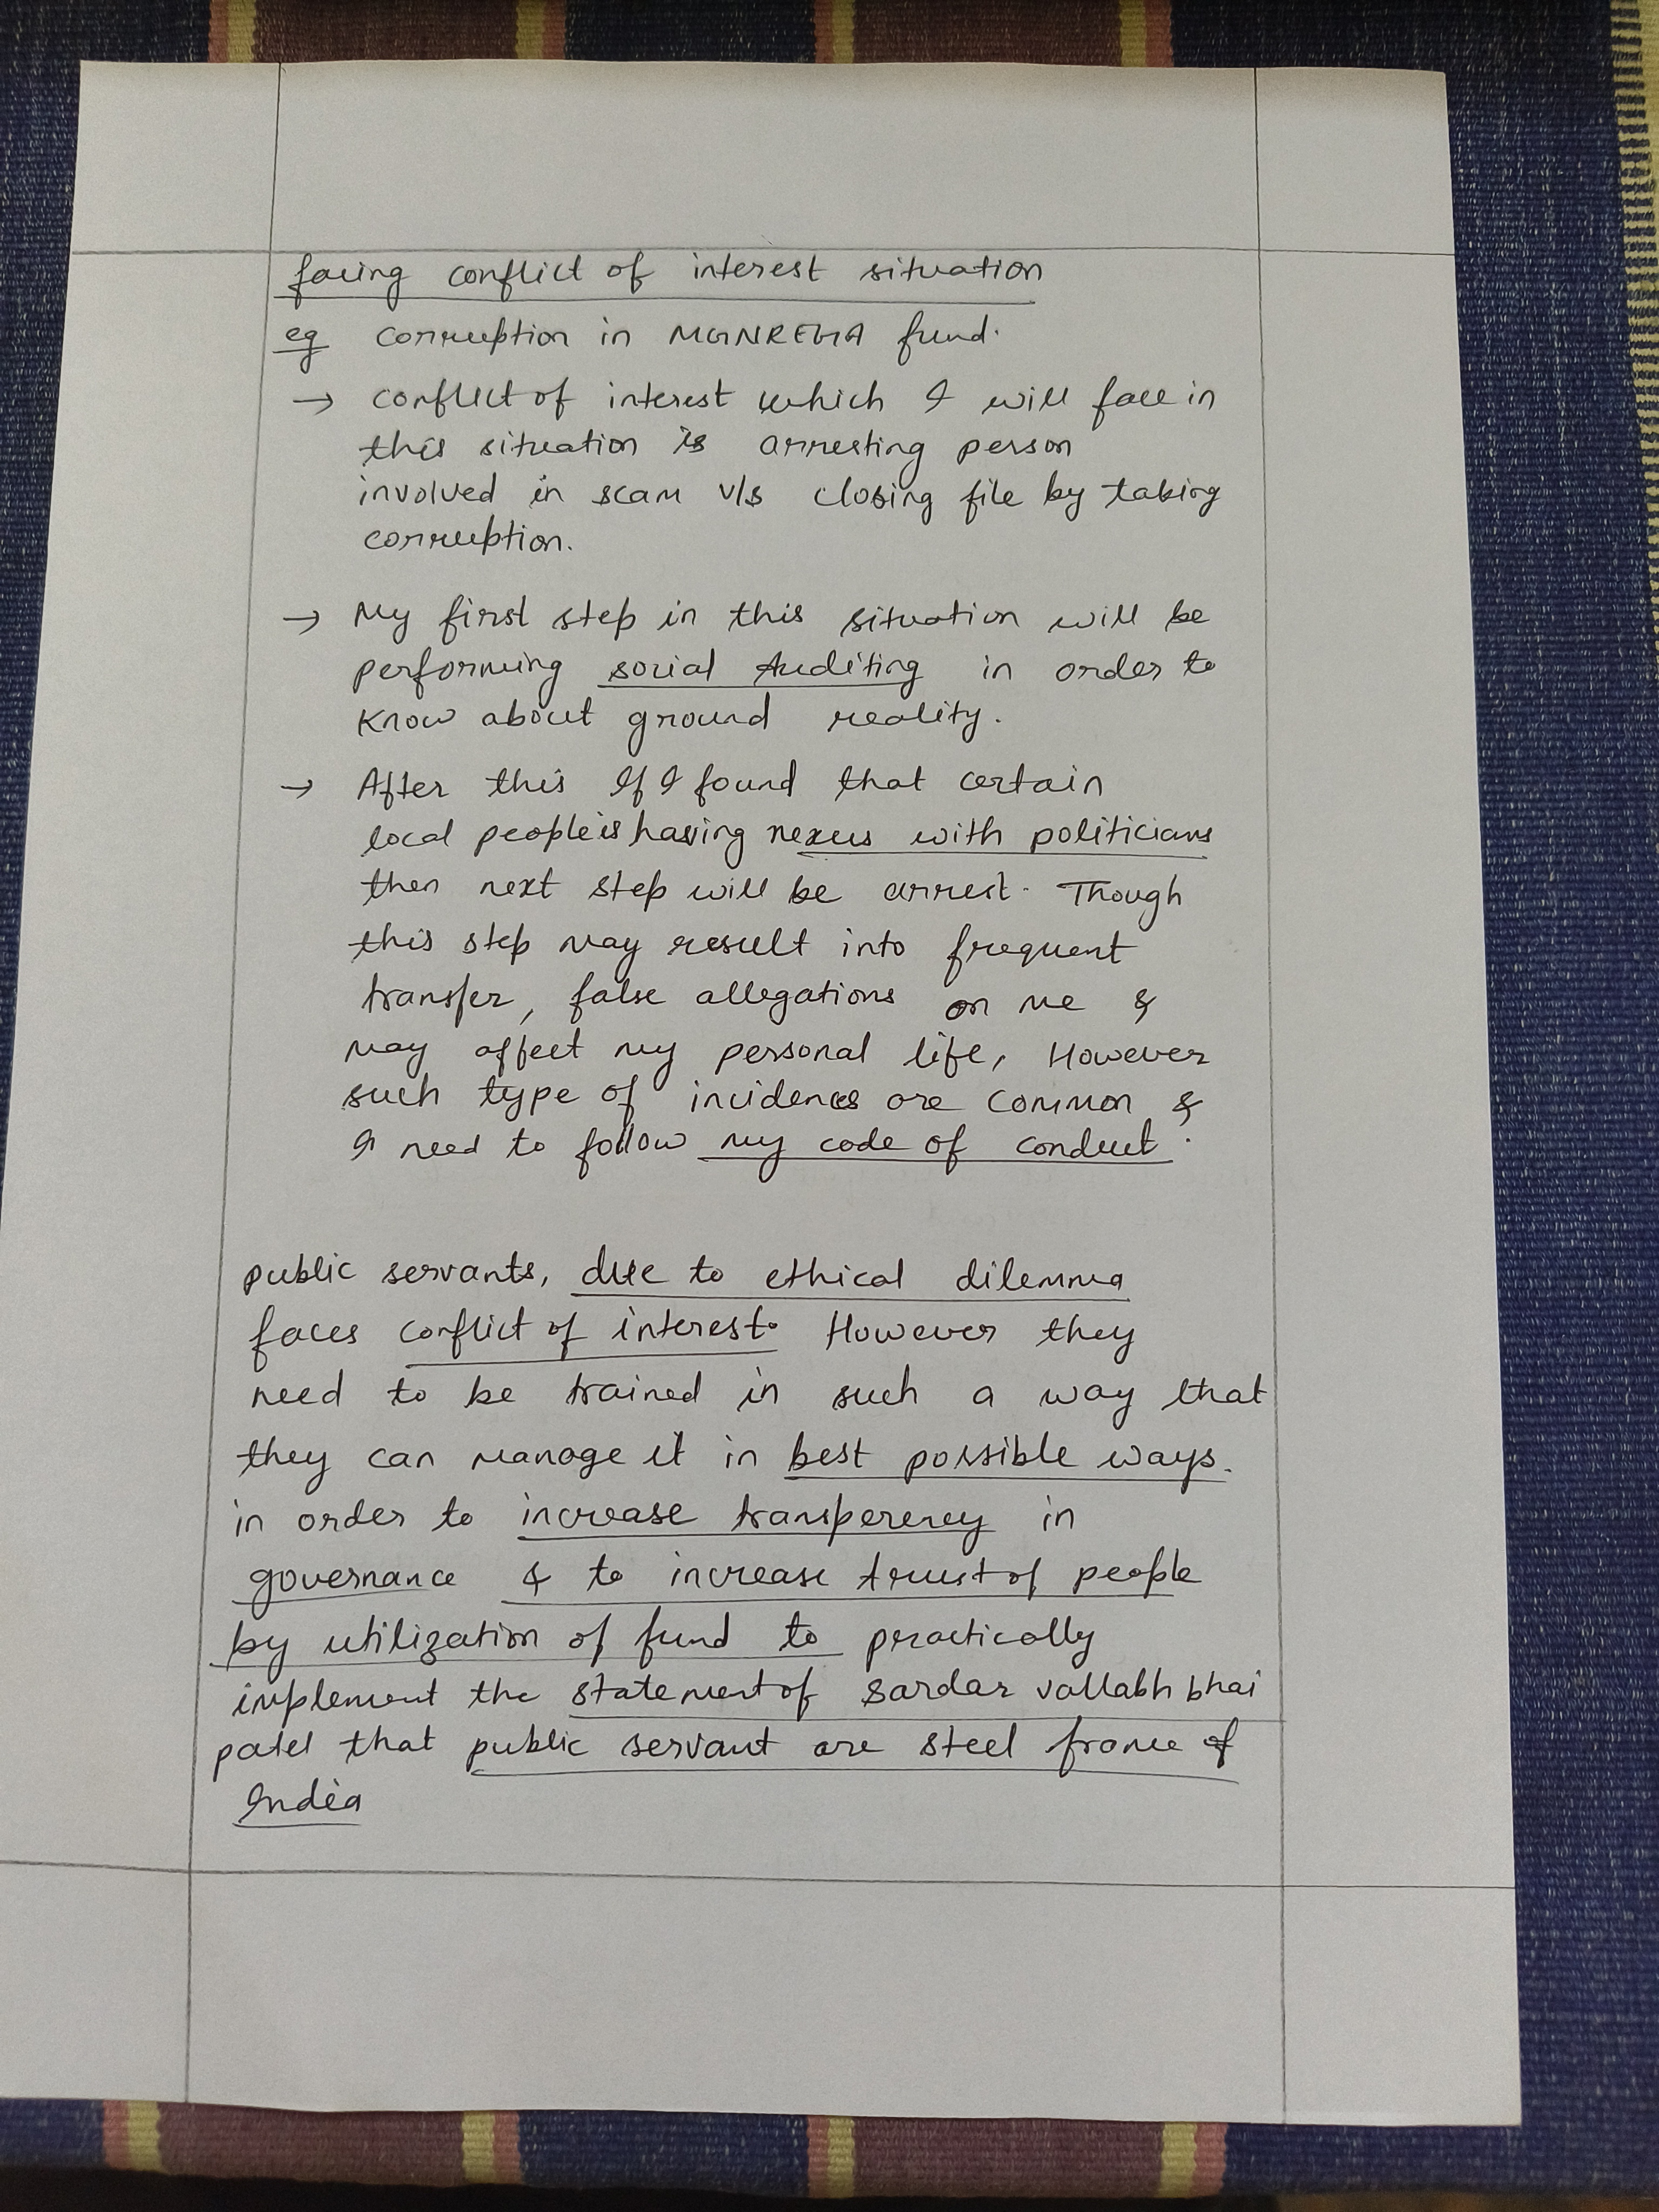 facing conflict of interest situation
eg corruption in MGNREGA fund.
→ conflict of interest which I will face in
this situation is arresting person
involved in scam v/s closing file by taking
corruption.
→ My first step in this situation will be
performing social Auditing in order to
know about ground reality.
→ After this If I found that certain
local people is having nexus with politicians
then next step will be arrest. Though
this step may result into frequent
transfer, false allegations on me &
may affect my personal life, However
such type of incidences are common &
I need to follow my code of conduct.
public servants, due to ethical dilemma
faces conflict of interest. However they
need to be trained in such a way that
they can manage it in best possible ways.
in order to increase transperency in
governance & to increase trust of people
by utilization of fund to practically
implement the statement of Sardar vallabh bhai
patel that public servant are steel frame of
India